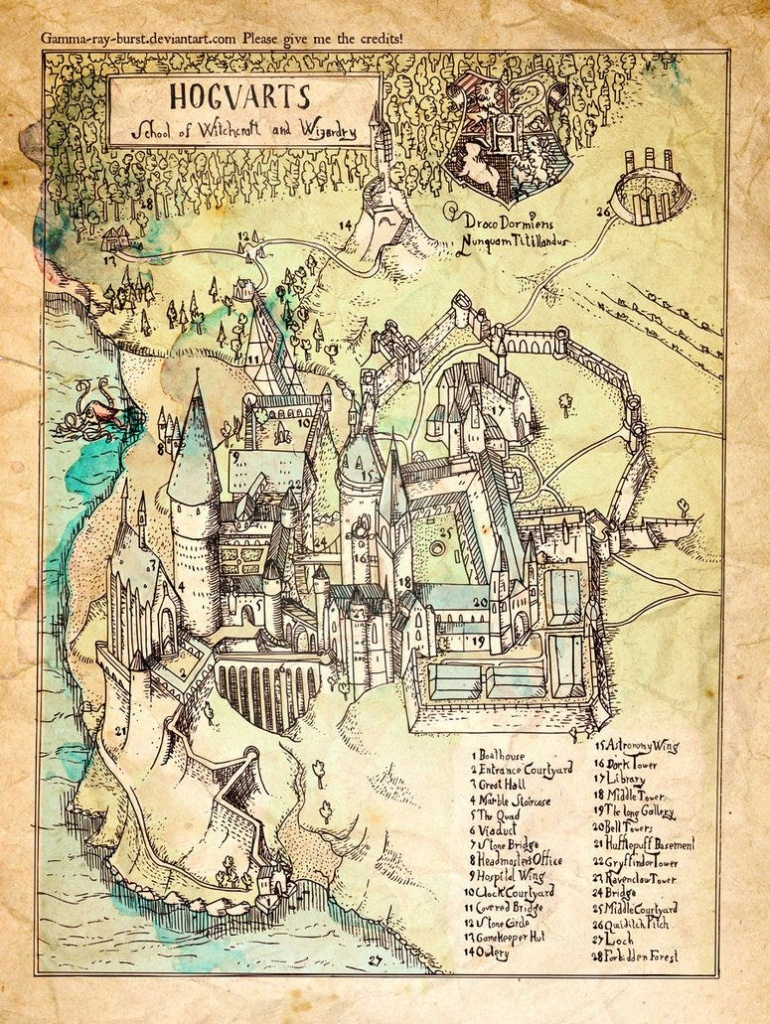 Gamma-ray-burst.deviantart.com Please give me the credits!
HOGVARTS
School of Witchcraft and Wizardry
H
Draco Dormiens
Nunquam Titillandus
28
26
14
12
13
11
17
10
8
9
15
22
25
24
16
3
4
18
5
20
19
2
21
27
1 Boathouse
2 Entrance Courtyard
3 Great Hall
4 Marble Staircase
5 The Quad
6 Viaduct
7 Stone Bridge
8 Headmosters Office
9 Hospital Wing
10 Clock Courtyard
11 Covered Bridge
12 Stone Circle
13 Gamekeeper Hut
14 Owlery
15 Astronomy Wing
16 Dark Tower
17 Library
18 Middle Tower
19 The long Gallery
20 Bell Towers
21 Hufflepuff Basement
22 Gryffindor Tower
23 Ravenclaw Tower
24 Bridge
25 Middle Courtyard
26 Quiditch Pitch
27 Loch
28 Forbidden Forest